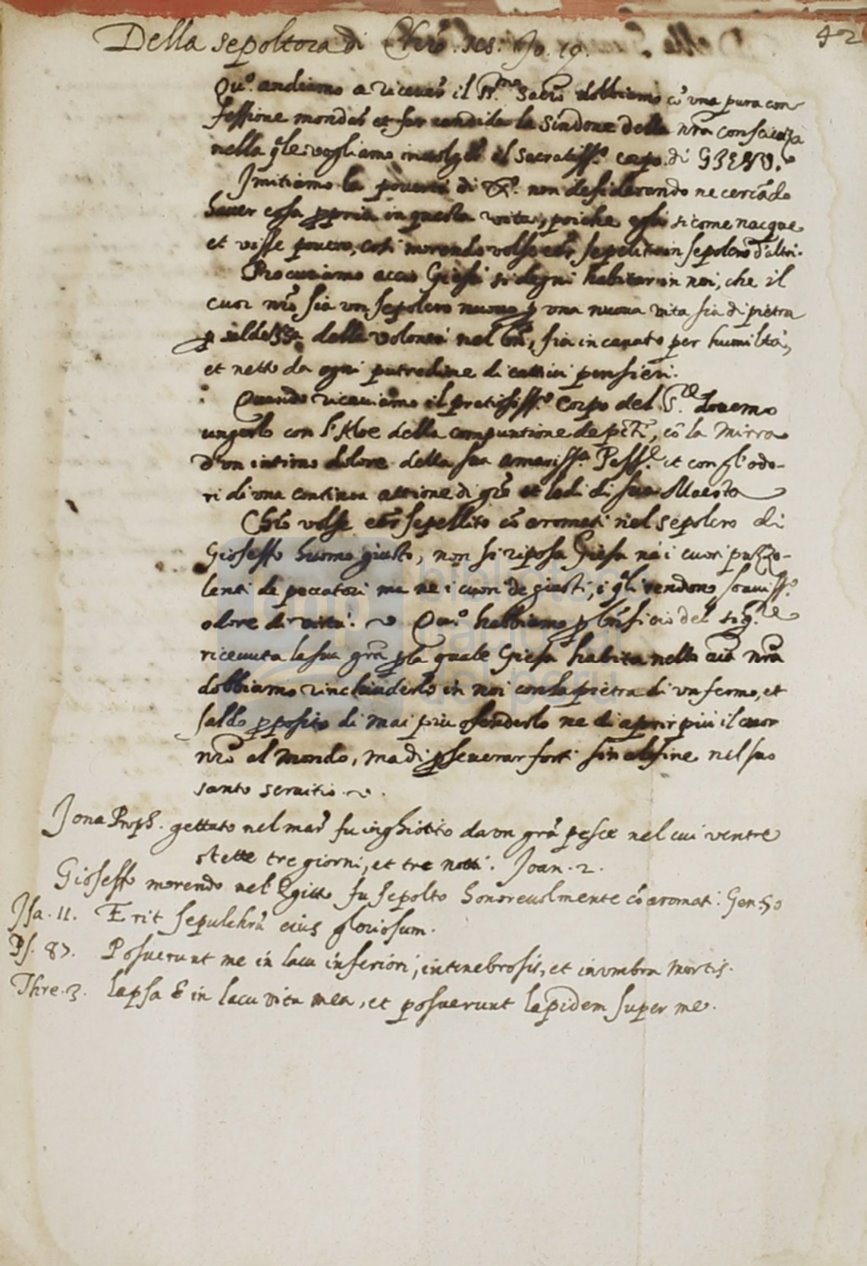 Della sepoltora di Chrõ. Jo. 19.
42
Qũ. andiamo a ricever il SSmo Sacrõ dobbiamo cõ una pura con-
fessione mondar et far candida la sindone della nrã conscienza
nella qle vogliamo involger il sacratissº. corpo di GIESV.
Imitiamo la povertà di Xº. non desiderando ne cercãdo
haver cosa ppria in questa vita, poiche egli si come nacque
et visse povero, così morendo volse esser sepelito in sepolcro d'altri.
Procuriamo acciò Giesù si degni habitar in noi, che il
cuor nrõ sia un sepolcro nuovo p una nuova vita sia di pietra
p saldezza della volontà nel bñ, sia incavato per humiltà,
et netto da ogni putredine di cattivi pensieri.
Quando riceviamo il pretiosissº. corpo del Sre. dovemo
ungerlo con l'Aloe della compuntione de pctĩ, cõ la Mirra
d'un intimo dolore della sua amarissa. Passe. et con gl'odo-
ri di una continua attione di grẽ et lodi di sua Maestà
Chrõ volse esser sepellito cõ aromati nel sepolcro di
Gioseffo huomo giusto, non si riposa Giesù nei i cuori puzzo-
lenti de peccatori ma ne i cuori de giusti, i qli rendono soavissº.
odore di virtù. Quãº habbiamo p bñficio del sigre.
ricevuta la sua grã p la quale Giesù habita nella aĩa nrã
dobbiamo rinchiuderlo in noi con la pietra di un fermo, et
saldo pposito di mai più ofenderlo ne di aprir più il cuor
nrõ al Mondo, ma di pseverar forti sin al fine nel suo
santo servitio.
Jona Proph. gettato nel mar fu inghiotito da un grã pesce nel cui ventre
stette tre giorni, et tre notti. Joan. 2.
Gioseffo morendo nel Egitto fu sepolto honorevolmente cõ aromati. Gen. 50
Isa. 11. Erit sepulchrũ eius gloriosum.
Ps. 87. Posuerunt me in lacu inferiori, in tenebrosis, et in umbra mortis.
Thre. 3. Lapsa ẽ in lacu vita mea, et posuerunt lapidem super me.